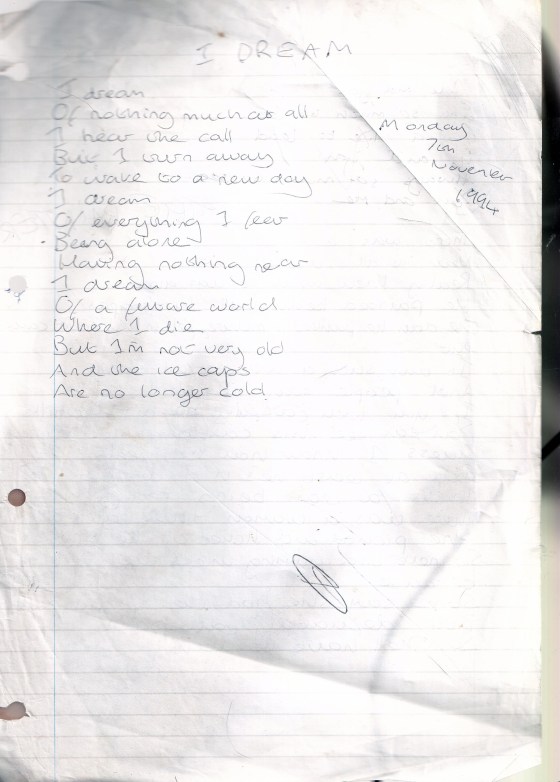 I DREAM
I dream
Of nothing much at all
I hear the call
But I turn away
To wake to a new day
I dream
Of everything I fear
Being alone
Having nothing near
I dream
Of a future world
Where I die
But I'm not very old
And the ice caps
Are no longer cold
Monday
7th
November
1994